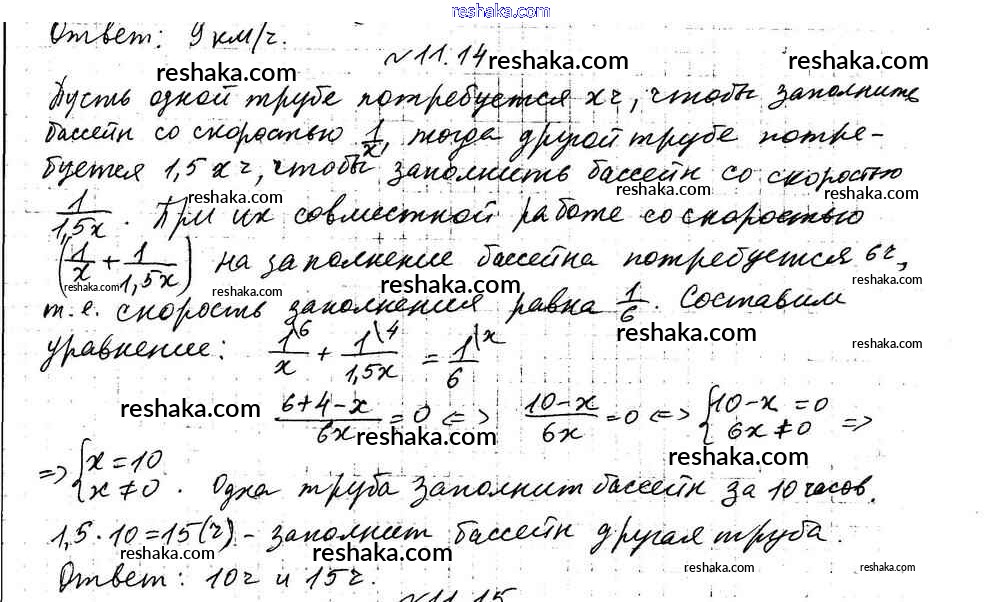 reshaka.com
Ответ: 9 км/ч.
№11.14
reshaka.com reshaka.com
Пусть одной трубе потребуется x ч, чтобы заполнить
бассейн со скоростью 1/x, тогда другой трубе потре-
буется 1,5x ч, чтобы заполнить бассейн со скоростью
reshaka.com reshaka.com reshaka.com
1/1,5x. При их совместной работе со скоростью
(1/x + 1/1,5x) на заполнение бассейна потребуется 6ч,
reshaka.com reshaka.com reshaka.com reshaka.com
т.е. скорость заполнения равна 1/6. Составим
reshaka.com reshaka.com
уравнение: 1\6/x + 1\4/1,5x = 1\x/6
reshaka.com reshaka.com
(6+4-x)/6x = 0 <=> (10-x)/6x = 0 <=> { 10-x = 0 6x ≠ 0 =>
reshaka.com
=> { x = 10 x ≠ 0. Одна труба заполнит бассейн за 10 часов.
1,5 · 10 = 15 (ч) - заполнит бассейн другая труба.
reshaka.com reshaka.com reshaka.com reshaka.com
Ответ: 10ч и 15ч.
№11.15